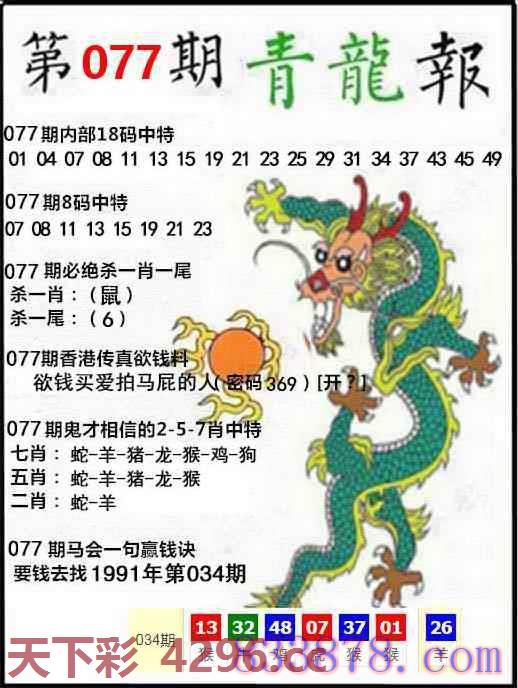 第077期青龍報
077期内部18码中特
01 04 07 08 11 13 15 19 21 23 25 29 31 34 37 43 45 49
077期8码中特
07 08 11 13 15 19 21 23
077期必绝杀一肖一尾
杀一肖:(鼠)
杀一尾:(6)
077期香港传真欲钱料
欲钱买爱拍马屁的人(密码369)[开?]
077期鬼才相信的2-5-7肖中特
七肖: 蛇-羊-猪-龙-猴-鸡-狗
五肖: 蛇-羊-猪-龙-猴
二肖: 蛇-羊
077期马会一句赢钱诀
要钱去找1991年第034期
034期 13 32 48 07 37 01 26
猴 牛 鸡 虎 猴 猴 羊
天下彩 4296.cc